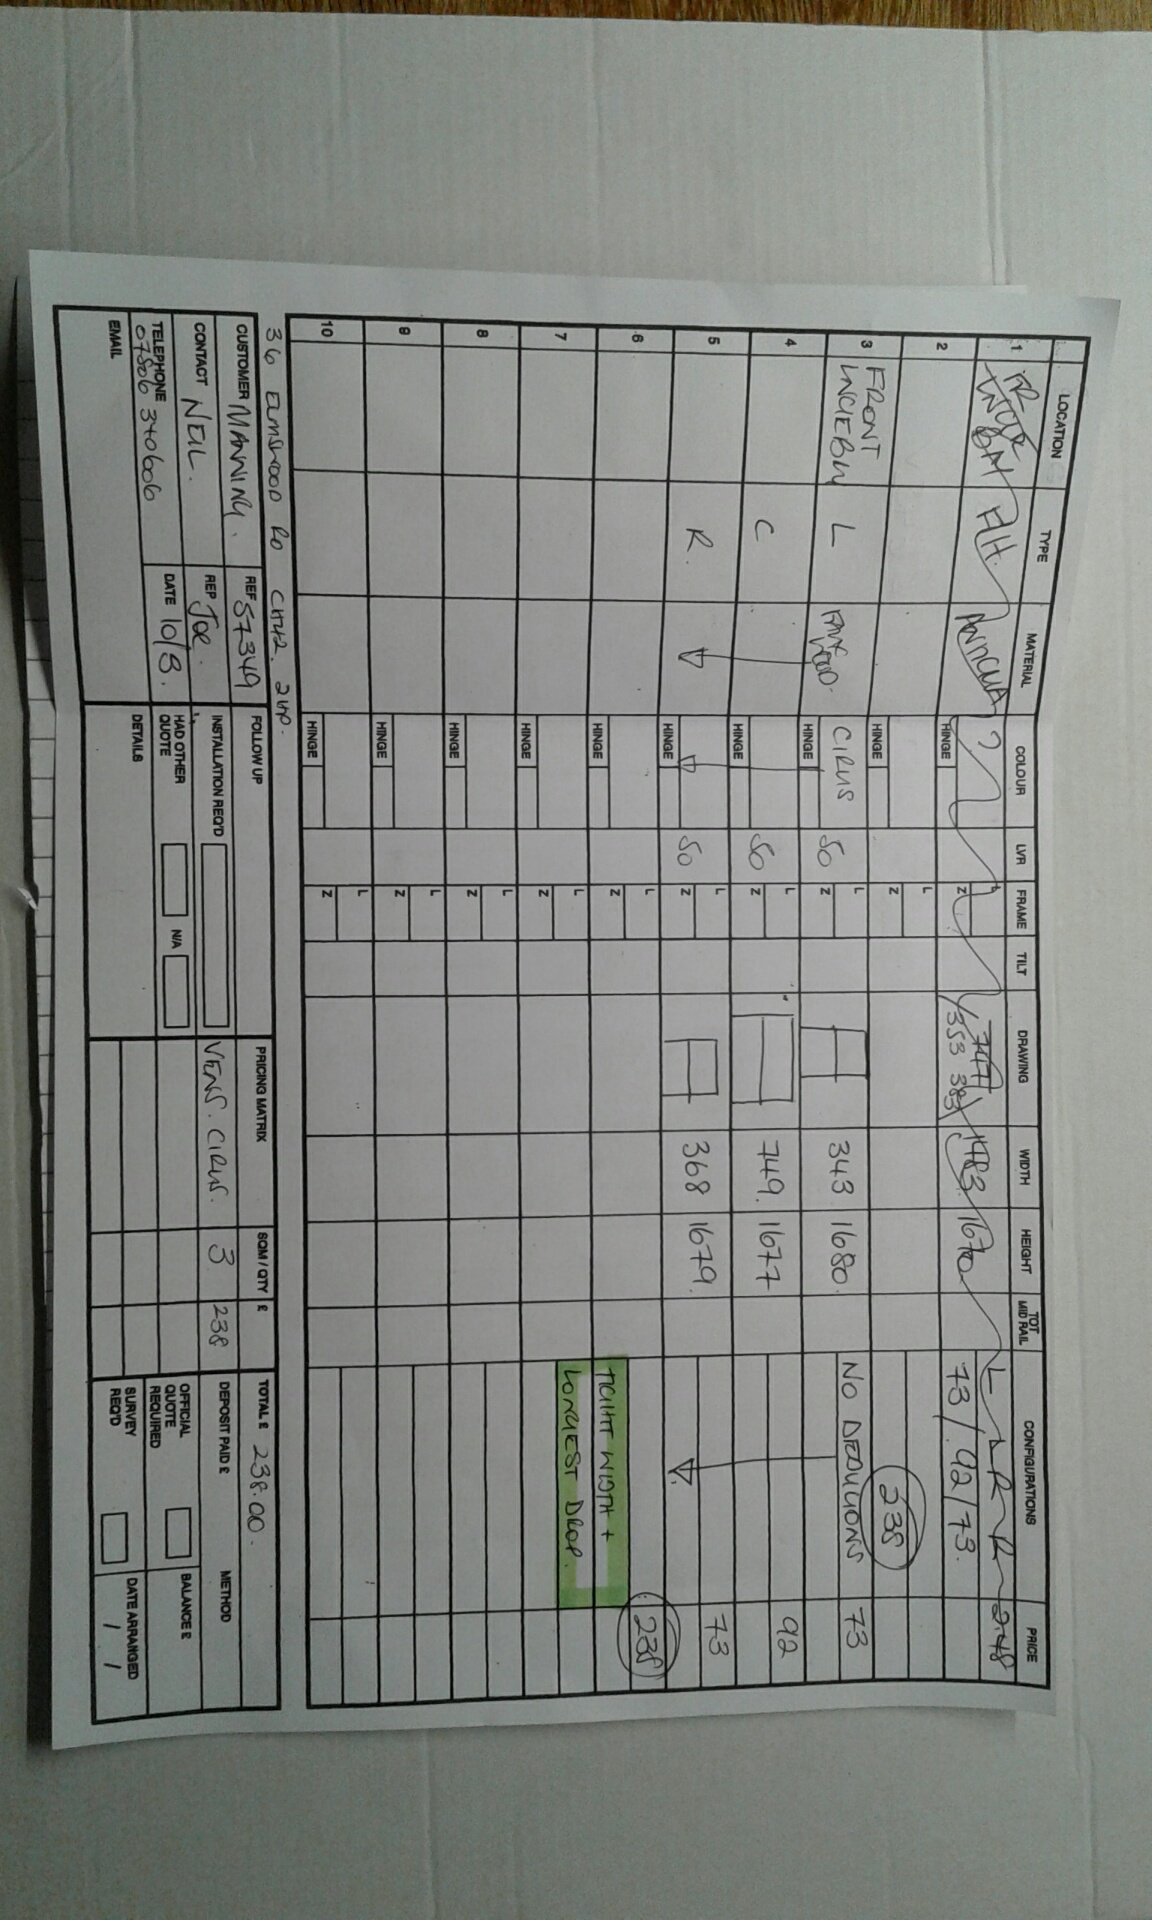 LOCATION TYPE MATERIAL COLOUR LVR FRAME TILT DRAWING WIDTH HEIGHT TOT MID RAIL CONFIGURATIONS PRICE
1 FR BAY F/H. ? HINGE L Z 747 353 383 1483 1670 L L R R 248
73/92/73.
2 HINGE L Z 238
3 FRONT L FAUX WOOD. CIRUS HINGE 50 L Z 343 1680 NO DEDUCTIONS 73
4 C HINGE 50 L Z 749. 1677 92
5 R. HINGE 50 L Z 368 1679. 73
6 HINGE L Z TIGHT WIDTH + 238
7 HINGE L Z LONGEST DROP.
8 HINGE L Z
9 HINGE L Z
10 HINGE L Z
36 ELMSWOOD RD CH42.
CUSTOMER MANNING. REF 57349 FOLLOW UP PRICING MATRIX SQM / QTY £ TOTAL £ 238.00.
CONTACT NEIL. REP JOE. INSTALLATION REQ'D VENS. CIRUS. 3 238 DEPOSIT PAID £ METHOD
TELEPHONE 07806 340606 DATE 10/8. HAD OTHER QUOTE N/A OFFICIAL QUOTE REQUIRED BALANCE £
EMAIL DETAILS SURVEY REQ'D DATE ARRANGED / /